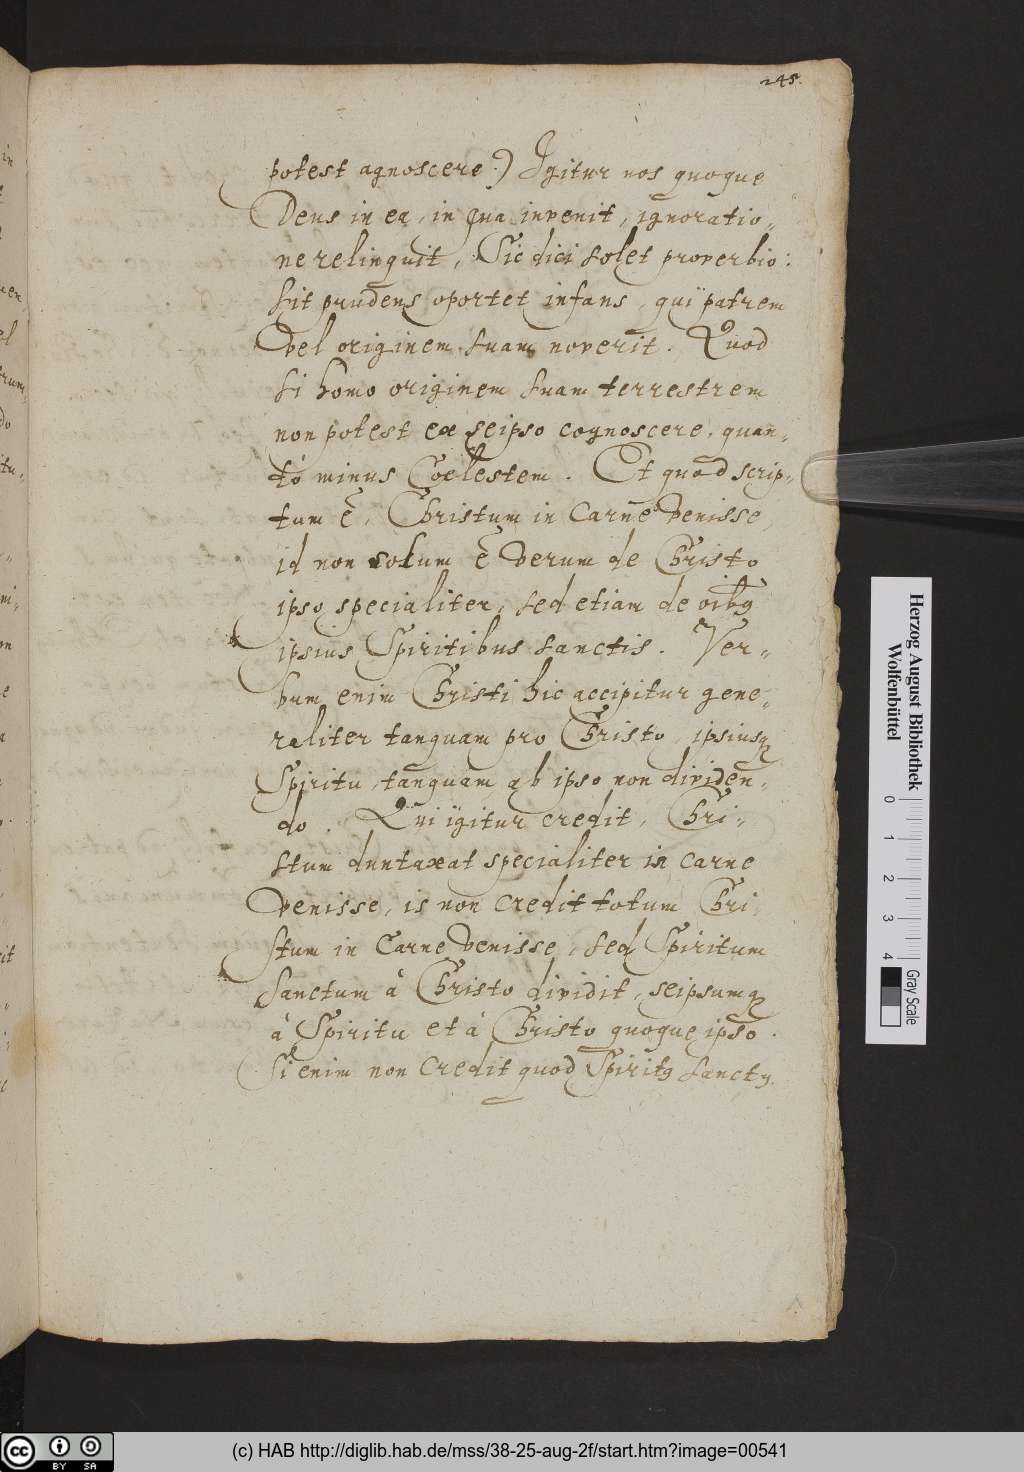 245.
potest agnoscere:) Igitur nos quoque
Deus in ea, in qua invenit, ignoratio„
ne relinquit, Sic dici solet proverbio:
sit prudens oportet infans, qui patrem
vel originem suam noverit. Quod
si homo originem suam terrestrem
non potest ex seipso cognoscere, quan„
tó minus Coelestem. Et quod scrip„
tum ē, Christum in Carne venisse,
id non solum ē verum de Christo
ipso specialiter, sed etiam de oībꝯ
ipsius Spiritibus sanctis. Ver„
bum enim Christi hic accipitur gene„
raliter tanquam pro Christo, ipsiusq̢
Spiritu, tanquam ab ipso non dividen„
do. Qui igitur credit, Chri„
stum duntaxat specialiter in carne
venisse, is non credit totum Chri„
stum in Carne venisse, sed Spiritum
Sanctum à Christo dividit, seipsumq̢
à Spiritu et à Christo quoque ipso.
Si enim non Credit quod Spiritꝯ sanctꝯ
Herzog August Bibliothek
Wolfenbüttel
0 1 2 3 4
Gray Scale
cc BY SA
(c) HAB http://diglib.hab.de/mss/38-25-aug-2f/start.htm?image=00541